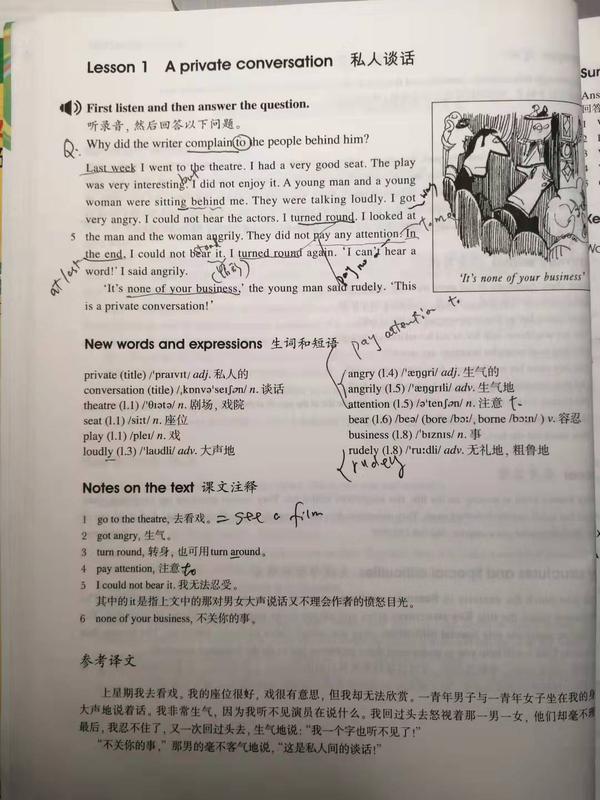 Lesson 1 A private conversation 私人谈话
First listen and then answer the question.
听录音,然后回答以下问题。
Q:
Why did the writer complain to the people behind him?
Last week I went to the theatre. I had a very good seat. The play
but
was very interesting. I did not enjoy it. A young man and a young
woman were sitting behind me. They were talking loudly. I got
very angry. I could not hear the actors. I turned round. I looked at
to me
5 the man and the woman angrily. They did not pay any attention. In
at last
the end, I could not bear it. I turned round again. 'I can't hear a
pay no
word!' I said angrily.
'It's none of your business,' the young man said rudely. 'This
is a private conversation!'
'It's none of your business'
pay attention to
New words and expressions 生词和短语
private (title) /'praɪvɪt/ adj. 私人的
conversation (title) /,kɒnvə'seɪʃən/ n. 谈话
theatre (l.1) /'θɪətə/ n. 剧场, 戏院
seat (l.1) /si:t/ n. 座位
play (l.1) /pleɪ/ n. 戏
loudly (l.3) /'laudli/ adv. 大声地
angry (l.4) /'æŋgri/ adj. 生气的
angrily (l.5) /'æŋgrɪli/ adv. 生气地
attention (l.5) /ə'tenʃən/ n. 注意 to
bear (l.6) /beə/ (bore /bɔ:/, borne /bɔ:n/ ) v. 容忍
business (l.8) /'bɪznɪs/ n. 事
rudely (l.8) /'ru:dli/ adv. 无礼地, 粗鲁地
rudey
Notes on the text 课文注释
1 go to the theatre, 去看戏。 = see a film
2 got angry, 生气。
3 turn round, 转身, 也可用turn around。
4 pay attention, 注意 to
5 I could not bear it. 我无法忍受。
其中的it是指上文中的那对男女大声说话又不理会作者的愤怒目光。
6 none of your business, 不关你的事。
参考译文
上星期我去看戏。我的座位很好, 戏很有意思, 但我却无法欣赏。一青年男子与一青年女子坐在我的身
大声地说着话。我非常生气, 因为我听不见演员在说什么。我回过头去怒视着那一男一女, 他们却毫不理
最后, 我忍不住了, 又一次回过头去, 生气地说: “我一个字也听不见了!”
“不关你的事,” 那男的毫不客气地说, “这是私人间的谈话!”
Sur
Ans
回答
Key